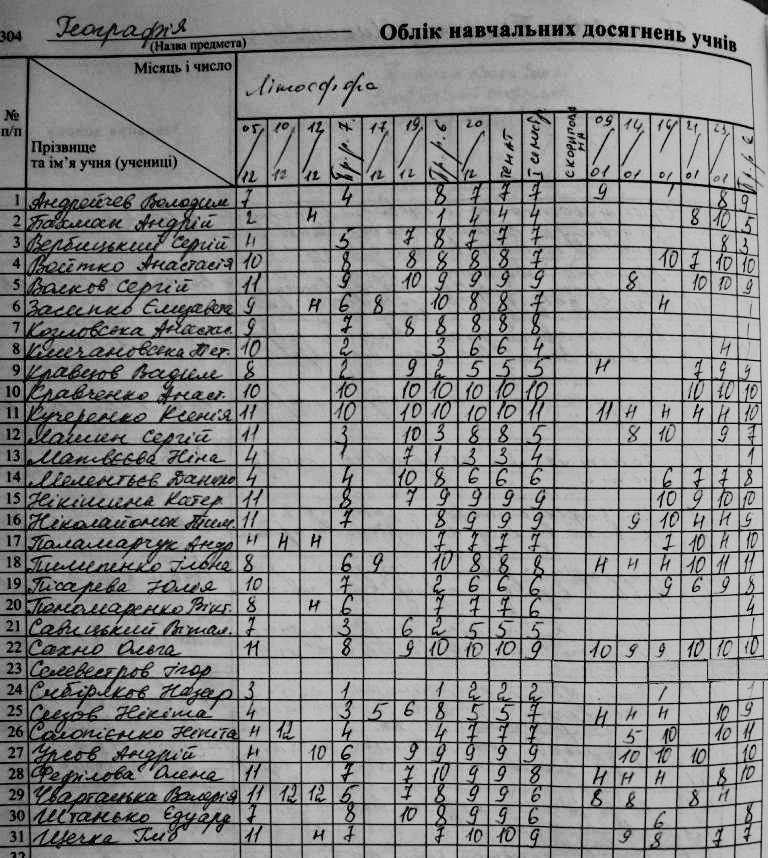 304 Географія Облік навчальних досягнень учнів
(Назва предмета)
№ п/п Місяць і число Літосфера
Прізвище та ім'я учня (учениці) 05/12 10/12 12/12 Пр.р.7. 17/12 19/12 Пр.р.6 20/12 ТЕМАТ І семестр СКОРИГОВАНА 09/01 14/01 16/01 21/01 23/01
1 Володим 7 4 8 7 7 7 9 1 8 9
2 Бахман Андрій 2 н 1 4 4 4 8 10 5
3 Вербицький Сергій 4 5 7 8 7 7 7 8 3
4 Войтко Анастасія 10 8 8 8 8 8 7 10 7 10 10
5 Волков Сергій 11 9 10 9 9 9 9 8 10 10 9
6 Засипко Єлизавета 9 н 6 8 10 8 8 7 н 1
7 Козловська Анастас. 9 7 8 8 8 8 8 1
8 10 2 3 6 6 4 н 1
9 Кравцов Вадим 8 2 9 2 5 5 5 н 7 9 9
10 Кравченко Анаст. 10 10 10 10 10 10 10 10 10 10
11 Кучеренко Ксенія 11 10 10 10 10 10 11 11 н н н н 10
12 Сергій 11 3 10 3 8 8 5 8 10 9 7
13 Матвєєва Ніна 4 1 7 1 3 3 4 1
14 Мелентьєв Данило 4 4 10 8 6 6 6 6 7 7 8
15 Нікішина Катер. 11 8 7 9 9 9 9 10 9 10 10
16 Ніколайонок Тим. 11 7 8 9 9 9 9 10 н н 9
17 Паламарчук Андр н н н 7 7 7 7 7 10 н 10
18 Пилипенко Ілона 8 6 9 10 8 8 8 н н н 10 11 11
19 Пісарева Юлія 10 7 2 6 6 6 9 6 9 8
20 Пономаренко Вікт. 8 н 6 7 7 7 6 4
21 Савицький Вітал. 7 3 6 2 5 5 5 1
22 Сахно Ольга 11 8 9 10 10 10 9 10 9 9 10 10 10
23 Селевестров Ігор
24 Сибіряков Назар 3 1 1 2 2 2 1 1
25 Сизов Нікіта 4 3 5 6 8 5 5 7 н н н 10 9
26 Нікіта н 12 4 4 7 7 7 5 10 10 11
27 Урсов Андрій н 10 6 9 9 9 9 9 10 10 10 10
28 Олена 11 7 7 10 9 9 8 н н н 8 10
29 Валерія 11 12 12 5 7 8 9 9 6 8 8 8 н
30 Штанько Едуард 7 8 10 8 9 9 6 6 8
31 Щечка Гліб 11 н 7 7 10 10 9 9 8 7 7
32